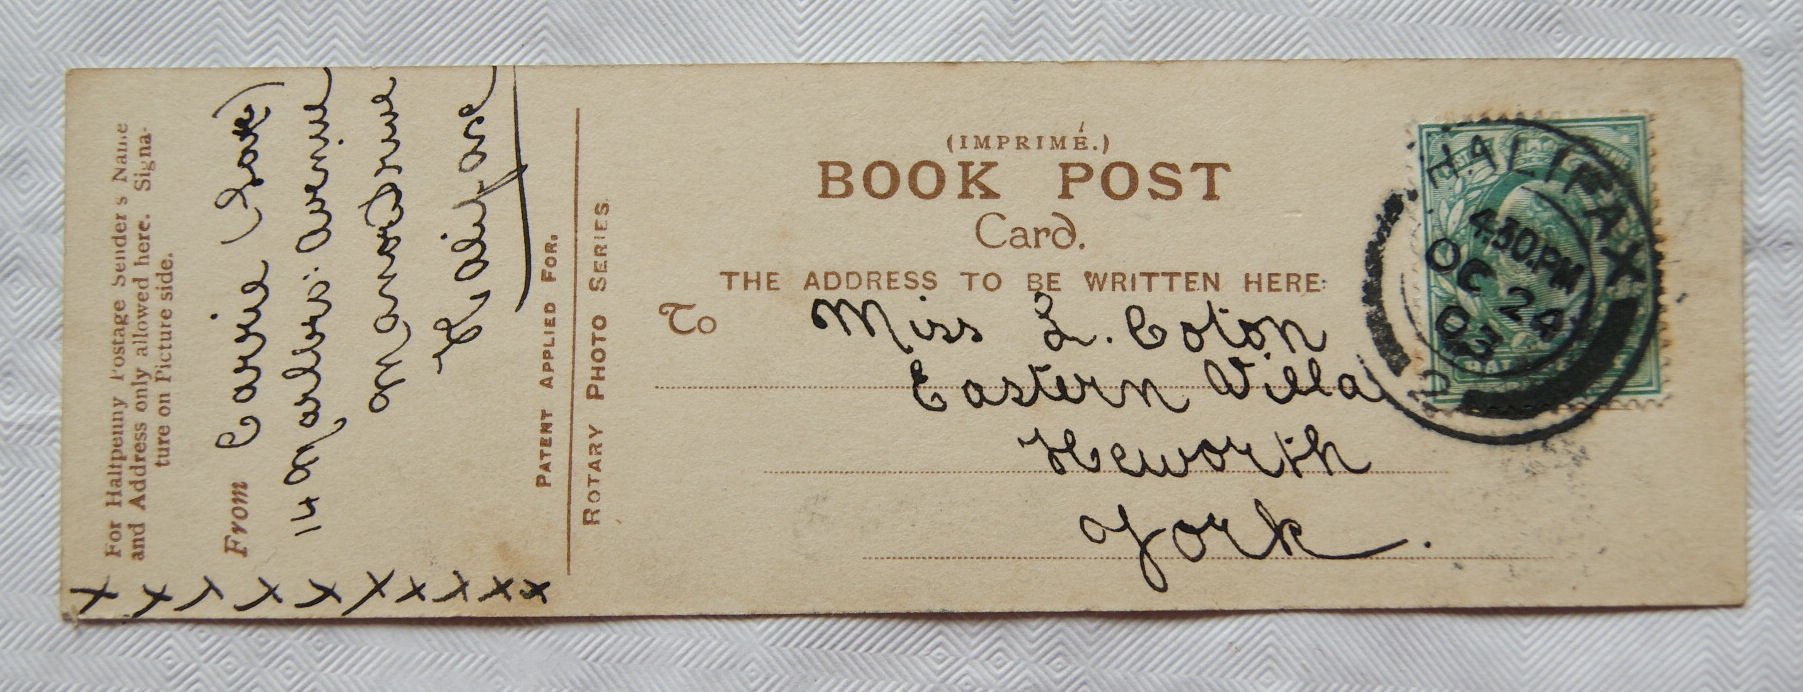 For Halfpenny Postage Sender's Name
and Address only allowed here. Signa-
ture on Picture side.
From Carrie (Love)
14 Marlbro: Avenue
Manor Drive
Halifax
x x x x x x x x x x
PATENT APPLIED FOR.
ROTARY PHOTO SERIES.
(IMPRIMÉ.)
BOOK POST
Card.
THE ADDRESS TO BE WRITTEN HERE:
To Miss L. Coton
Eastern Villa
Heworth
York.
HALIFAX
4.30.PM
OC 24
03
2